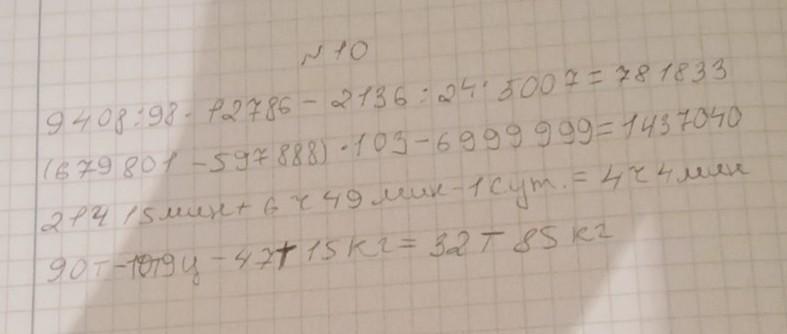 № 10
9408:98·12786-2136:24·5007=781833
(679801-597888)·103-6999999=1437040
21ч 15мин+6ч 49мин-1сут.=4ч 4мин
90т-10т9ц-47т 15кг=32т 85кг